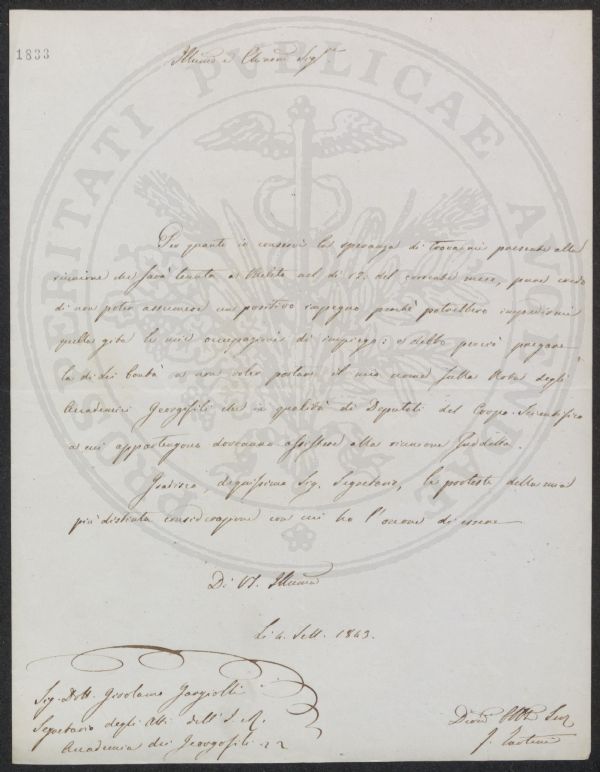 1833
Illmo e Chiarmo Sigre
Per quanto io conservi la speranza di trovarmi presente alla
riunione che sarà tenuta a Meleto nel dì 12. del corrente mese, pure credo
di non poter assumere un positivo impegno perchè potrebbero impedirmi
quella gita le mie occupazioni di impiego: e debbo perciò pregare
la di Lei bontà a non voler portare il mio nome sulla Nota degli
Accademici Georgofili che in qualità di Deputati del Corpo Scientifico
a cui appartengono dovranno assistere alla riunione suddetta.
Gradisca, degnissimo Sig. Segretario, le proteste della mia
più distinta considerazione con cui ho l'onore di essere
Di VS. Illma
Li 4. Sett. 1843.
Sig. Dott. Girolamo Gargiolli
Segretario degli Atti dell'I. R.
Accademia dei Georgofili
Devmo Obbo Serv
PROSPERITATI PVBLICAE AVGENDAE